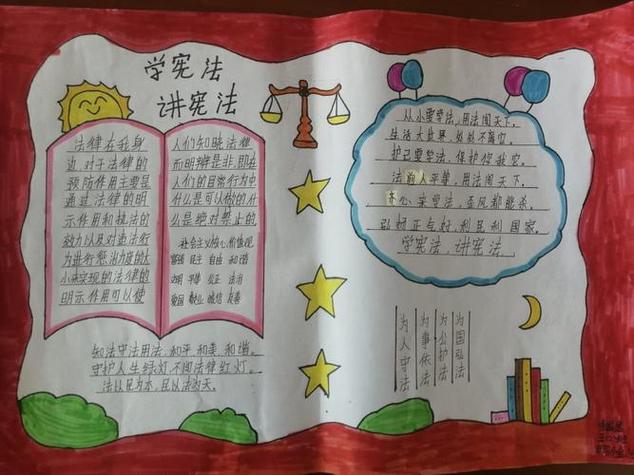 学宪法
讲宪法
法律在我身
边,对于法律的
预防作用主要是
通过法律的明
示作用和执法的
效力以及对违法行
为进行惩治力度的大
小来实现的法律的
明示作用可以使
人们知晓法律
而明辨是非,即在
人们的日常行为中
什么是可以做的什
么是绝对禁止的
社会主义核心价值观
富强 民主 自由 和谐
文明 平等 公正 法治
爱国 敬业 诚信 友善
知法守法用法,和平,和美,和谐。
守护人生绿灯,不闯法律红灯。
法以民为本,民以法为天。
从小要学法,用法闯天下。
生活大世界,
护己要学法,保护
法前人平等,用法闯天下。
齐心来学法,歪风都能杀。
弘正气好,利民利国家。
学宪法,讲宪法
为人守法
为事依法
为公护法
为国弘法